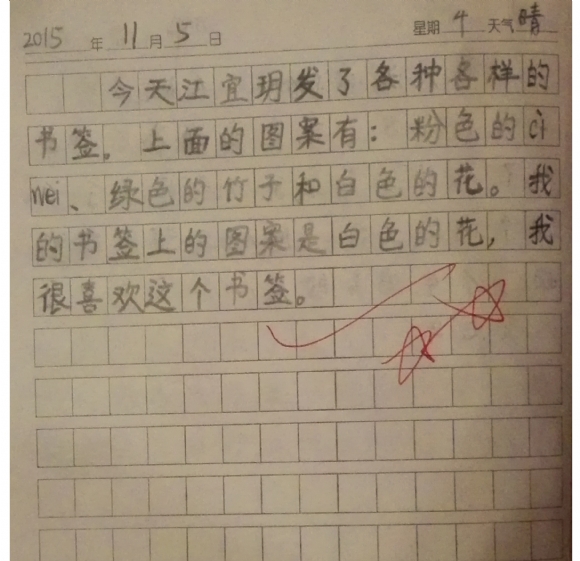 2015 年 11 月 5 日 星期 4 天气 晴
今天江宜玥发了各种各样的
书签。上面的图案有：粉色的cì
wei、绿色的竹子和白色的花。我
的书签上的图案是白色的花，我
很喜欢这个书签。